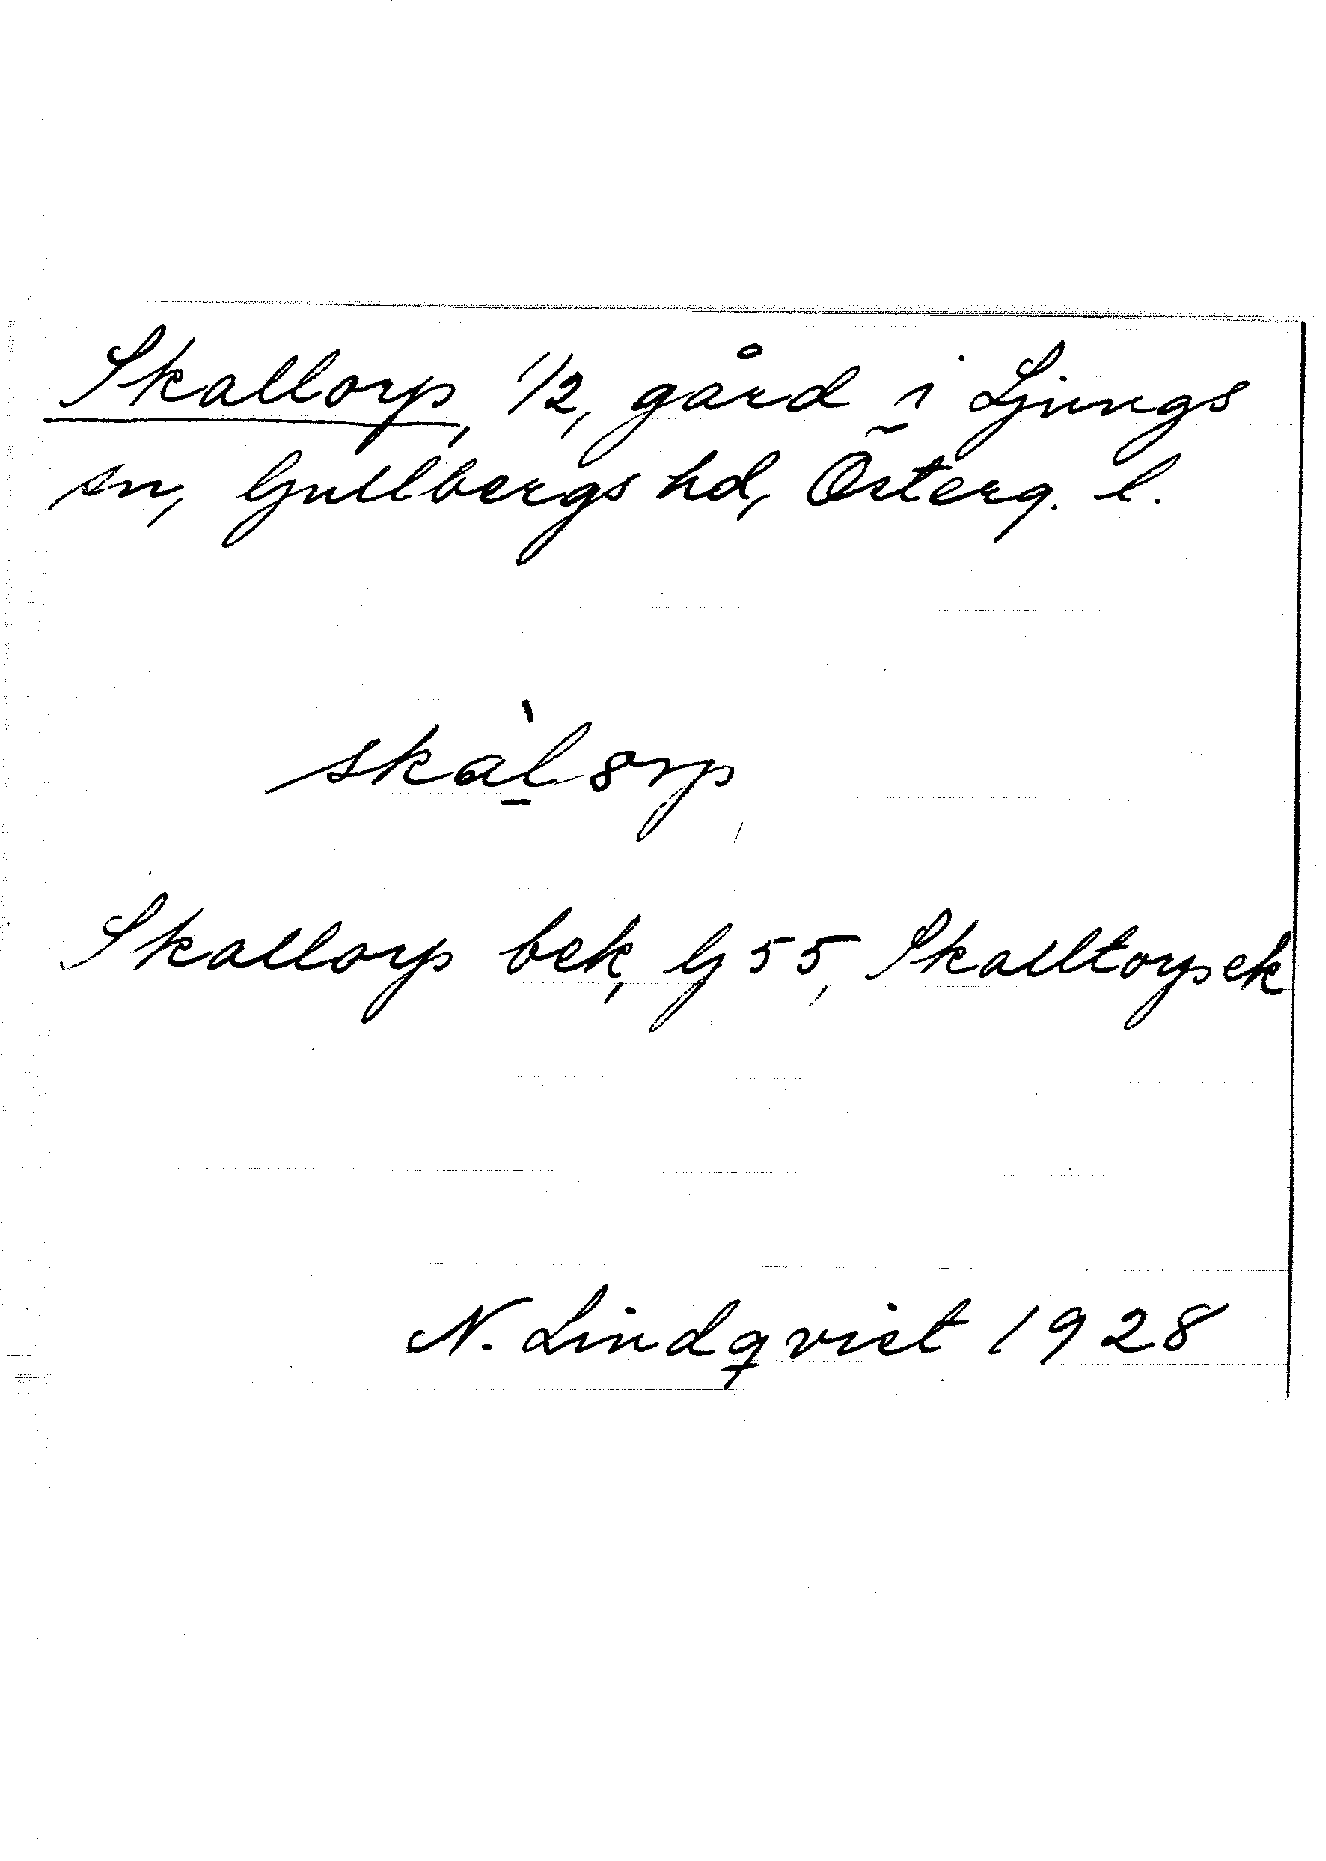 Skallorp, 1/2, gård i Ljungs
sn, Gullbergs hd, Österg. l.
skàl̠orp
Skallorp bek, G 55, Skalltorp ek
N. Lindqvist 1928